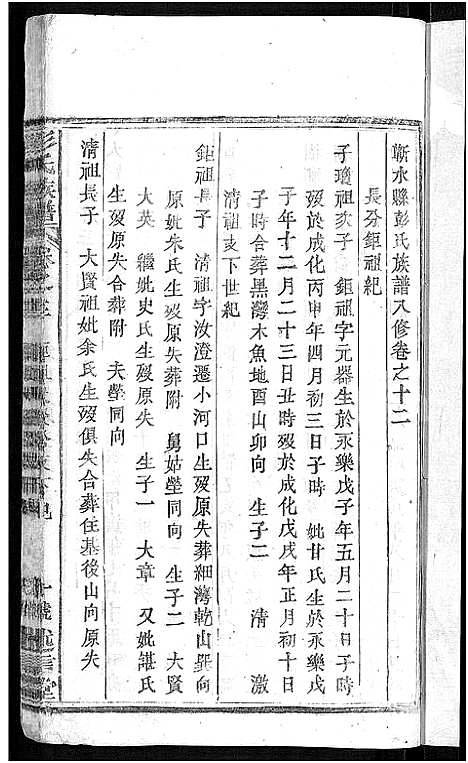 蘄水縣彭氏族譜八修卷之十二
長分鉅祖紀
子瓊祖次子　鉅祖字元器生於永樂戊子年五月二十日子時
歿於成化丙申年四月初三日子時　妣甘氏生於永樂戊
子年十二月二十三日丑時歿於成化戊戌年正月初十日
子時合葬黑灣木魚地酉山卯向　生子二　清　激
清祖支下世紀
鉅祖長子　清祖字汝澄遷小河口生歿原失葬細灣乾山巽向
原妣朱氏生歿原失葬附　舅姑塋同向　生子二　大賢
大英　繼妣史氏生歿原失　生子一　大章　又妣諶氏
生歿原失合葬附　夫塋同向
清祖長子　大賢祖妣余氏生歿俱失合葬住基後山向原失
彭氏族譜